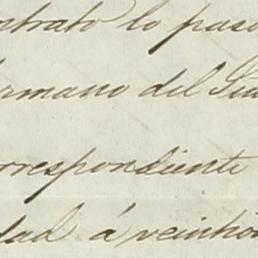 ntrato lo paso
ermano del
rrespondiente
dad á veintio